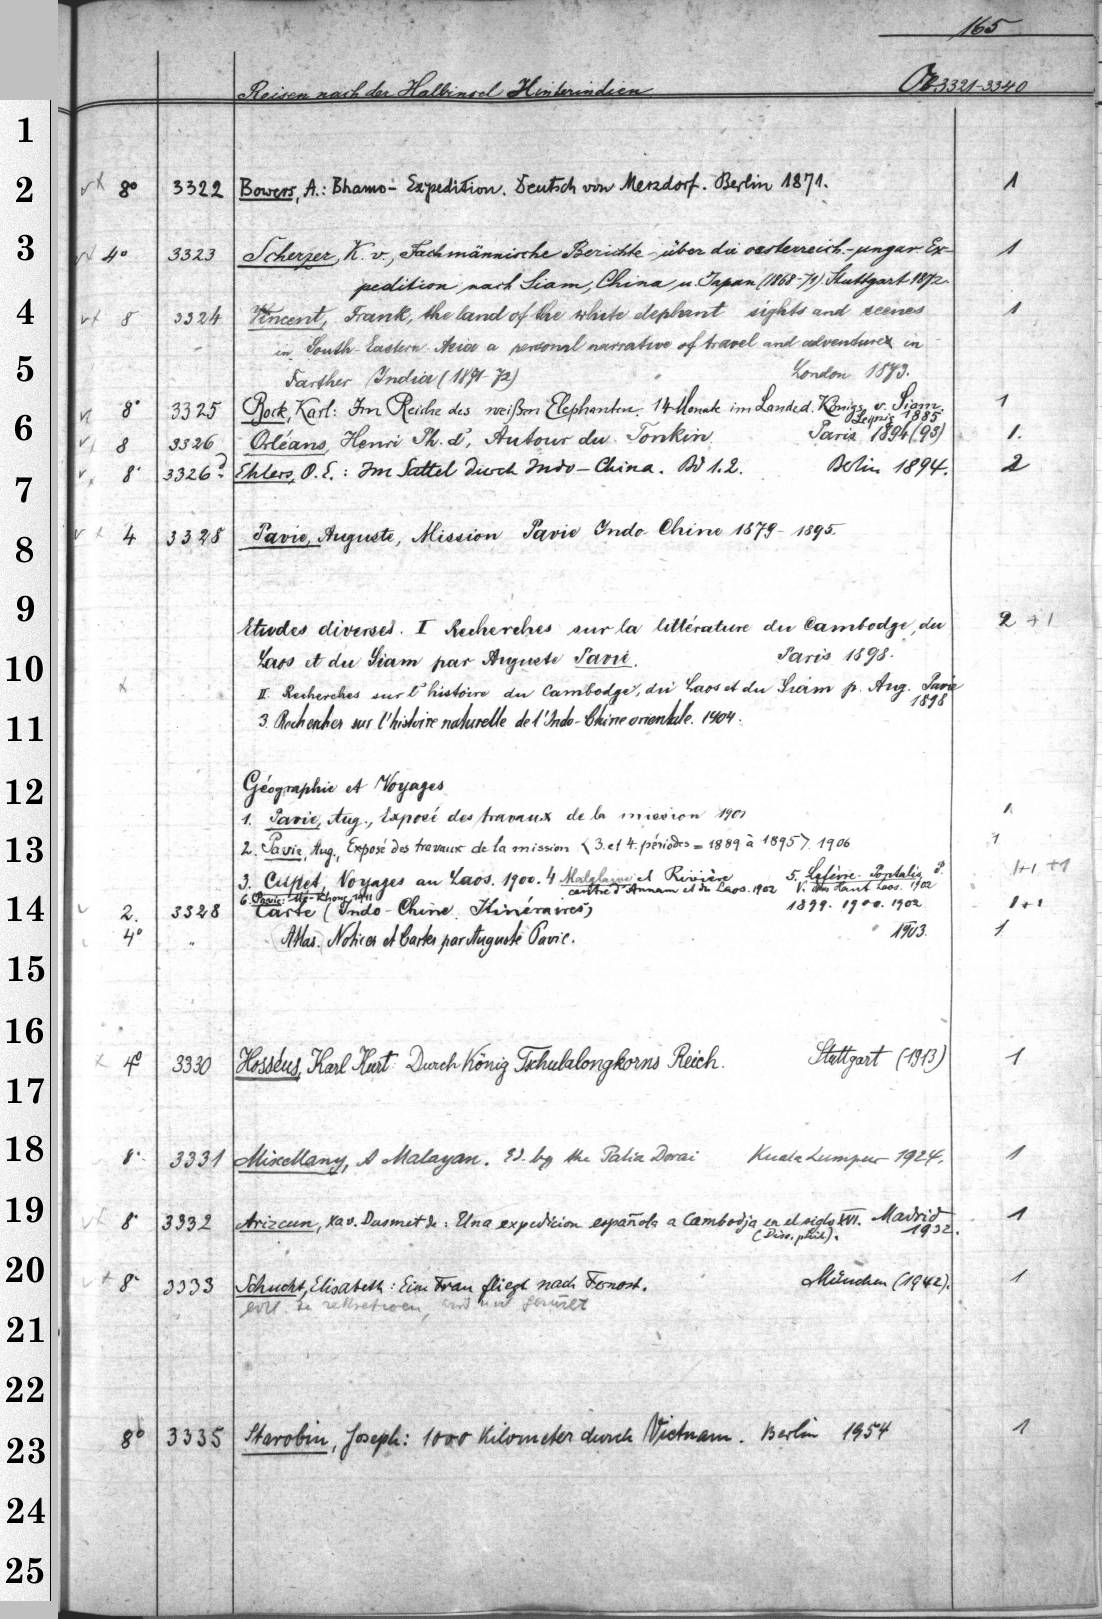 165
Reisen nach der Halbinsel Hinterindien Oe 3321-3340
1
2 8° 3322 Bowers, A.: Bhamo - Expedition. Deutsch von Merzdorf. Berlin 1871. 1
3 4° 3323 Scherzer, K. v., Fachmännische Berichte über die oesterreich.-ungar. Ex-
pedition nach Siam, China, u. Japan (1868-71) Stuttgart 1872. 1
4 8 3324 Vincent, Frank, the land of the white elephant sights and scenes 1
in South-Eastern Asia a personal narrative of travel and adventures in
5 Farther India (1871-72) London 1873.
8° 3325 Bock, Karl: Im Reiche des weißen Elephanten. 14 Monate im Lande d. Königs v. Siam. Leipzig 1885 1
6 8 3326 Orléans, Henri Ph. d', Autour du Tonkin. Paris 1894 (93) 1.
8° 3326 Ehlers, O. E.: Im Sattel durch Indo-China. Bd 1.2. Berlin 1894. 2
7
8 4 3328 Pavie, Auguste, Mission Pavie Indo-Chine 1879-1895.
9 Etudes diverses. I Recherches sur la littérature du Cambodge, du 2 +1
10 Laos et du Siam par Auguste Pavie. Paris 1898.
II. Recherches sur l'histoire du Cambodge, du Laos et du Siam p. Aug. Pavie 1898
11 3. Recherches sur l'histoire naturelle de l'Indo-Chine orientale. 1904.
12 Géographie et Voyages
1. Pavie, Aug., Exposé des travaux de la mission 1901 1
13 2. Pavie, Aug., Exposé des travaux de la mission <3. et 4. périodes = 1889 à 1895> 1906 1
3. Cupet, Voyages au Laos. 1900. 4 Malglaive et Rivière 5. Lefèvre-Pontalis P. 1+1 +1
centre d'Annam et du Laos. 1902 V. dans Haut Laos. 1902
6. Pavie: Mé-Khong 1911
14 2. 3328 Carte (Indo-Chine. Itinéraires) 1899. 1900. 1902 1+1
4° " Atlas. Notices et Cartes par Auguste Pavie. 1903. 1
15
16
4° 3330 Hosséus, Karl Kurt: Durch König Tschulalongkorns Reich. Stuttgart (1913) 1
17
18 8° 3331 Miscellany, A Malayan. Ed. by the Palia Dorai Kuala Lumpur 1924. 1
19 8° 3332 Arizcun, Xav. Dusmet de: Una expedicion española a Cambodja en el siglo XVI. Madrid 1932. 1
(Diss. phil.).
20 8° 3333 Schucht, Elisabeth: Eine Frau fliegt nach Fernost. München (1942). 1
21
22
23 8° 3335 Starobin, Joseph: 1000 Kilometer durch Vietnam. Berlin 1954 1
24
25